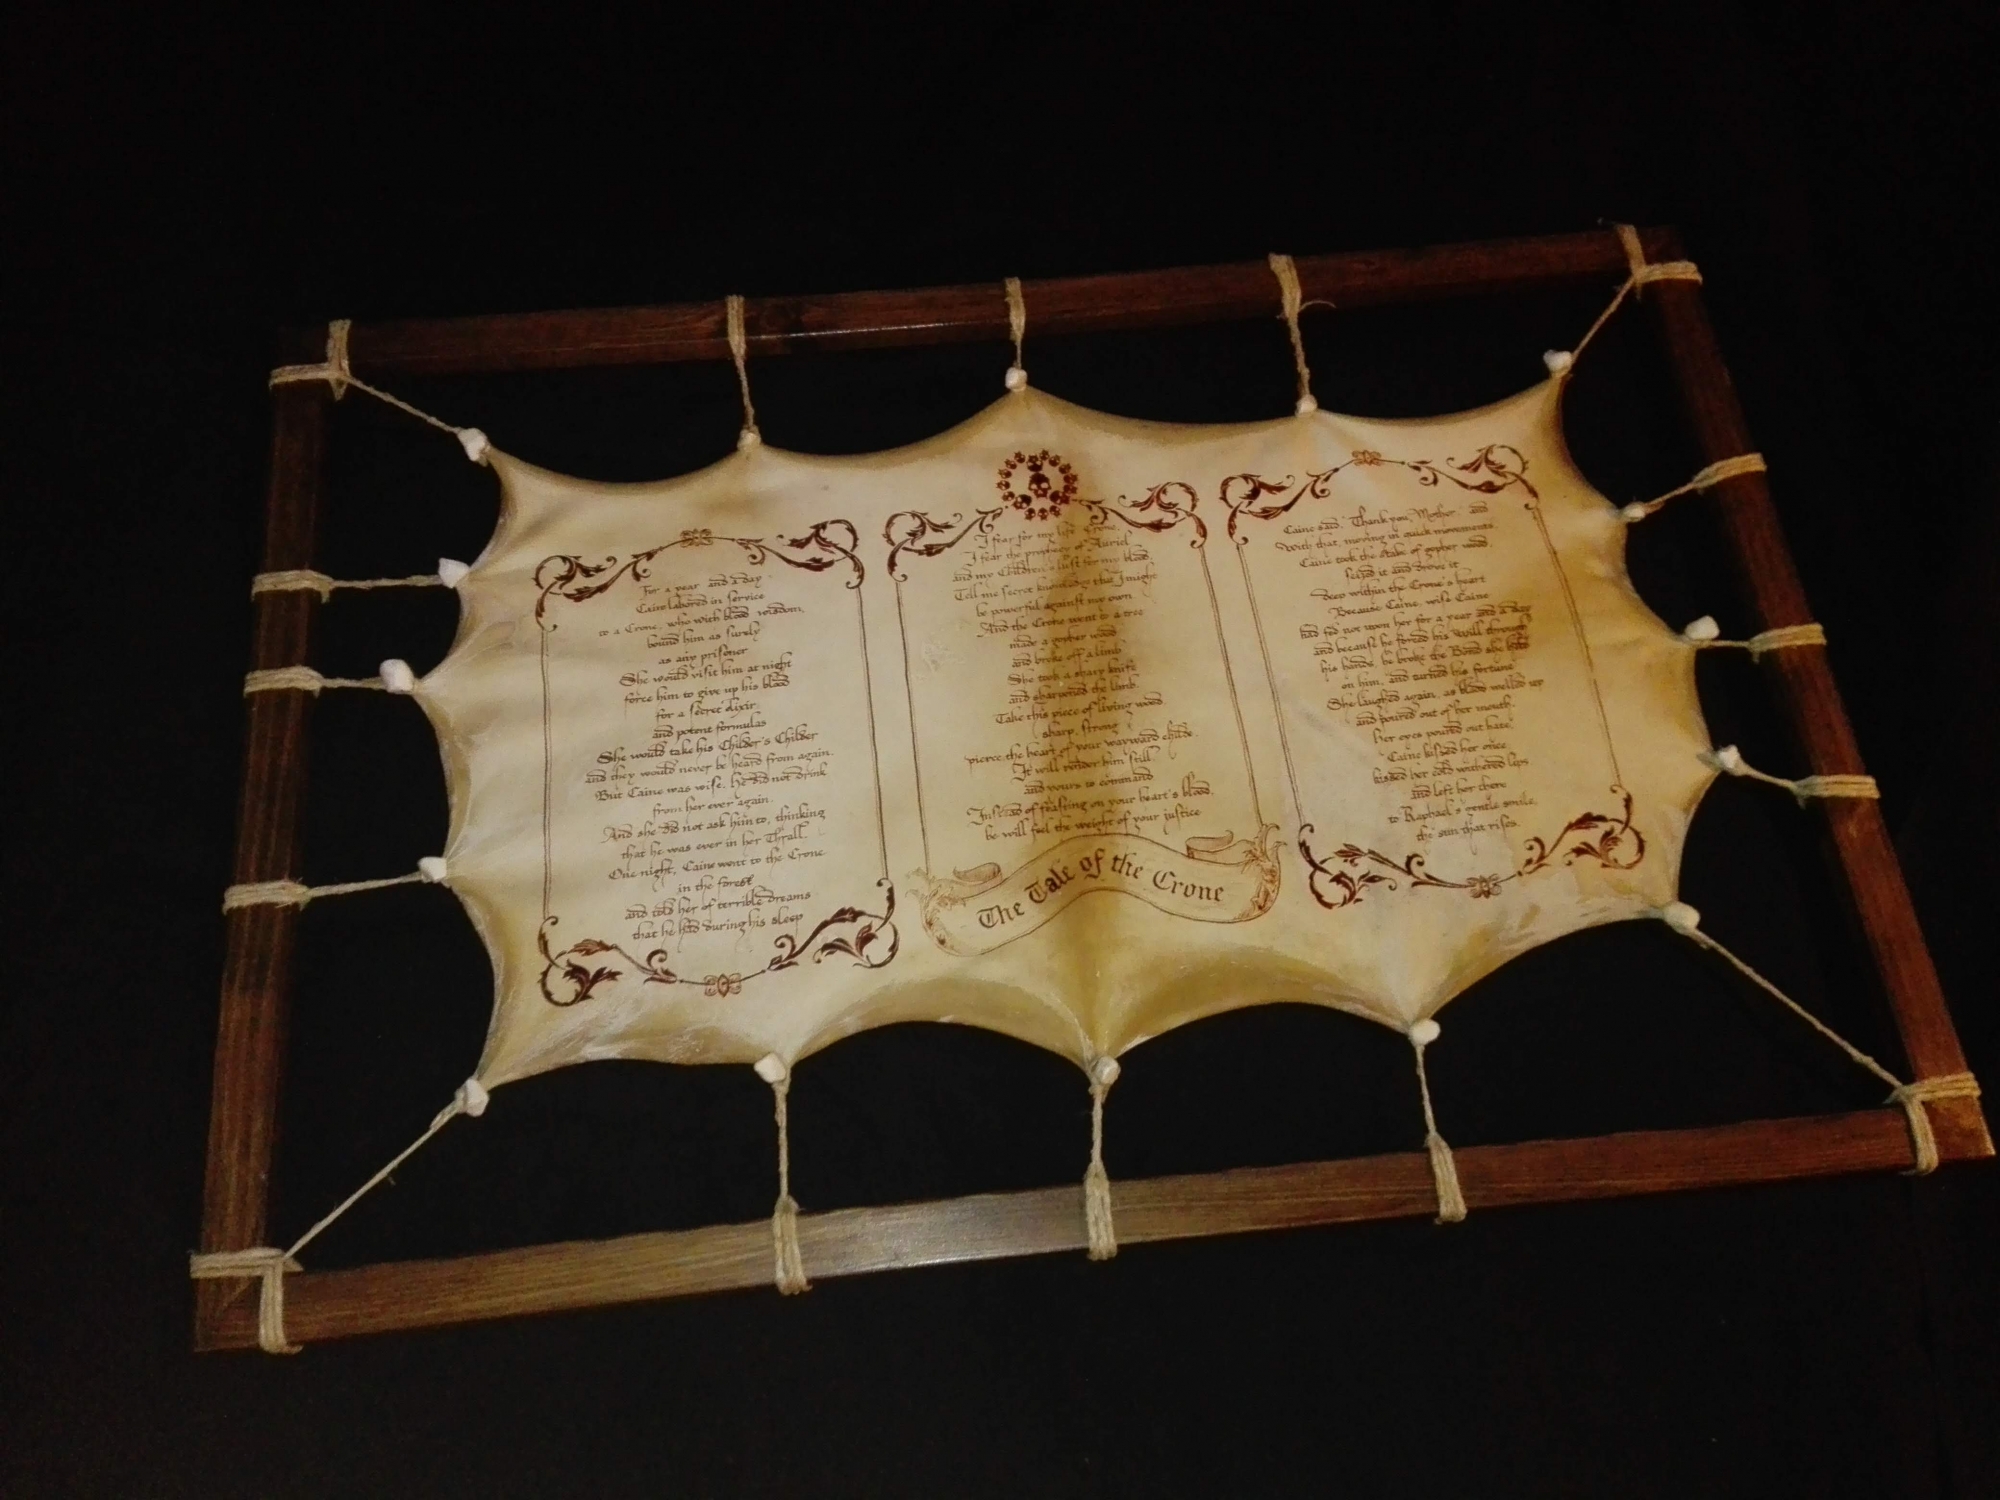 For a year and a day
Cain labored in service
to a Crone, who with blood wisdom,
bound him as surely
as any prisoner
She would visit him at night
force him to give up his blood
for a secret elixir,
and potent formulas
She would take his Childer's Childer
and they would never be heard from again.
But Caine was wise, he did not drink
from her ever again.
And she did not ask him to, thinking
that he was ever in her Thrall.
One night, Caine went to the Crone
in the forest
and told her of terrible dreams
that he had during his sleep
I fear for my life Crone,
I fear the prophecy of Auriel
and my Children's lust for my blood,
Tell me secret knowledge that I might
be powerful against my own
And the Crone went to a tree
made a gopher wood
and broke off a limb
She took a sharp knife
and sharpened the limb.
Take this piece of living wood,
sharp, strong
pierce the heart of your wayward childe.
It will render him still
and yours to command
Instead of feasting on your heart's blood,
he will feel the weight of your justice
The Tale of the Crone
Caine said "Thank you, Mother" and
with that, moving in quick movements,
Caine took the stake of gopher wood,
seized it and drove it
deep within the Crone's heart
Because Caine, wise Caine
had fed not upon her for a year and a day
and because he forced his Will through
his hands, he broke the Bond she had
on him, and turned his fortune
She laughed again, as blood welled up
and poured out of her mouth.
Her eyes poured out hate.
Caine kissed her once,
kissed her cold withered lips
and left her there
to Raphael's gentle smile,
the sun that rises.